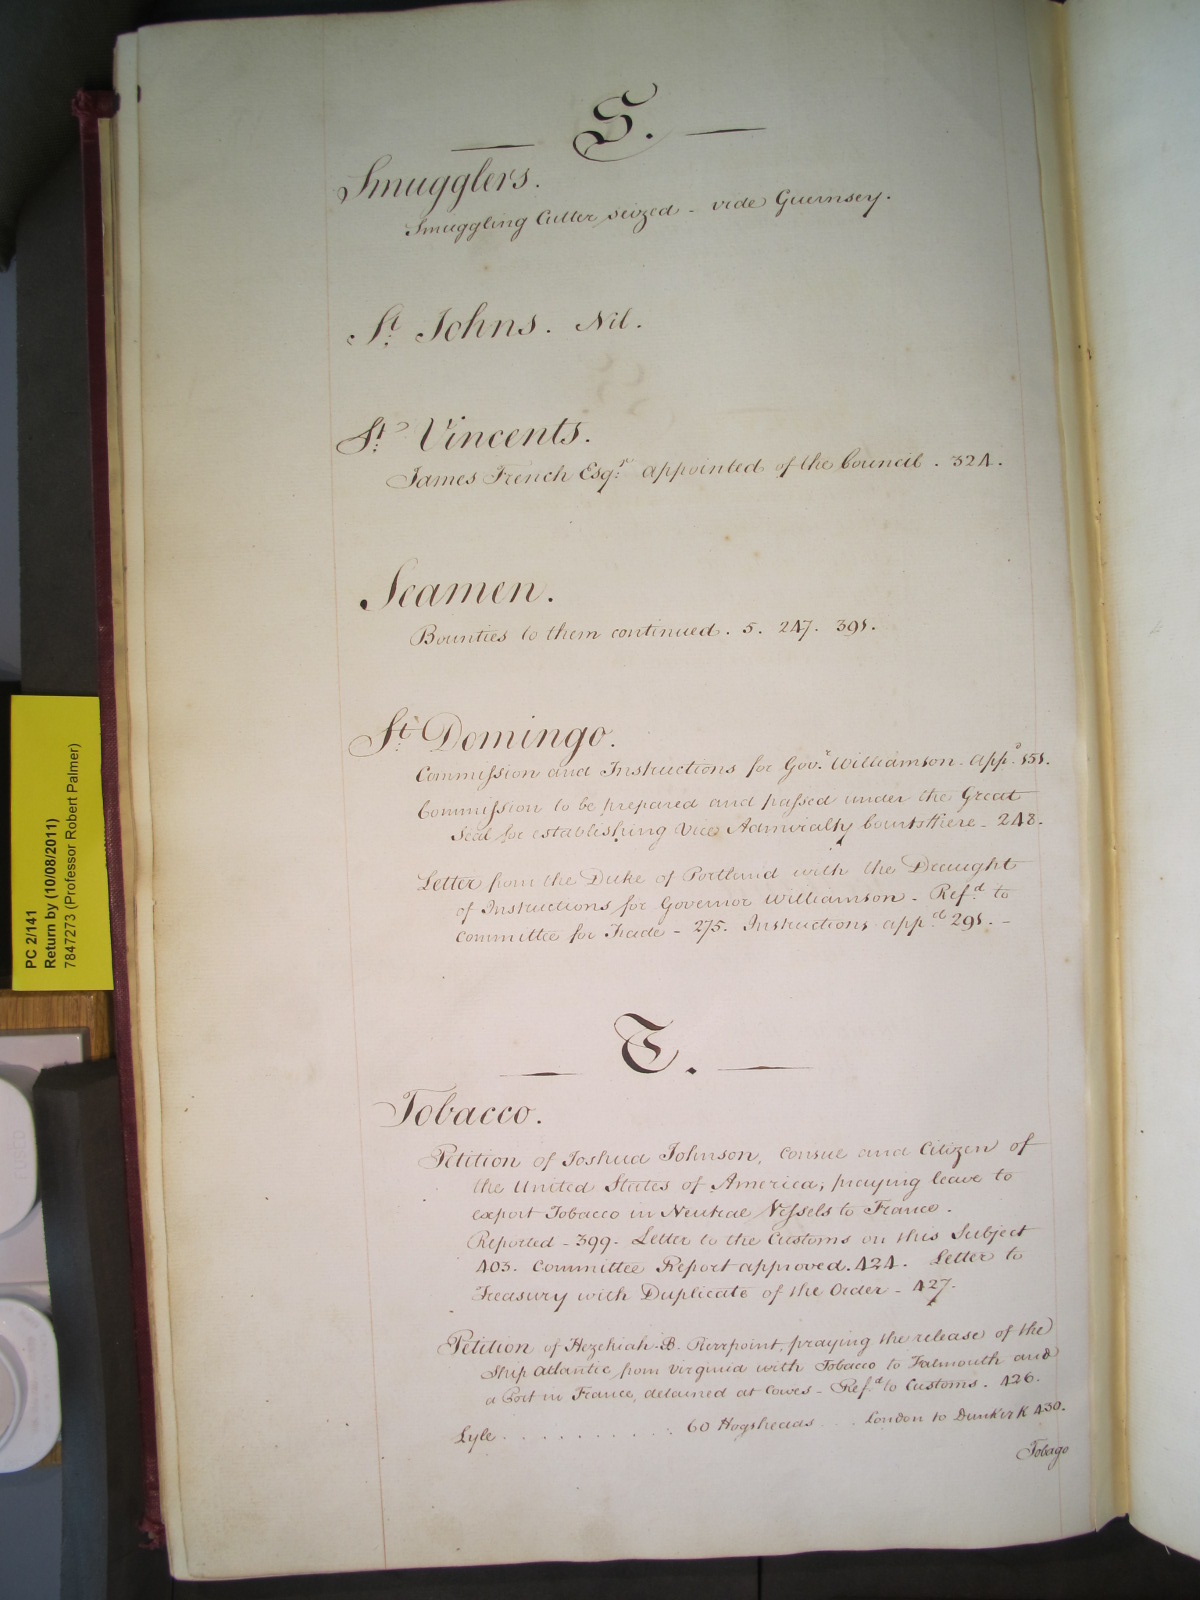 S.
Smugglers.
Smuggling Cutter seized - vide Guernsey.
St. Johns. Nil.
St. Vincents.
James French Esqr. appointed of the Council. 324.
Seamen.
Bounties to them continued. 5. 247. 391.
St. Domingo.
Commission and Instructions for Govr. Williamson. appd. 151.
Commission to be prepared and passed under the Great
Seal for establishing Vice Admiralty Courts there - 248.
Letter from the Duke of Portland with the Draught
of Instructions for Governor Williamson - Refd. to
Committee for Trade - 275. Instructions appd. 291. -
T.
Tobacco.
Petition of Joshua Johnson, Consul and Citizen of
the United States of America, praying leave to
export Tobacco in Neutral Vessels to France.
Reported - 399 - Letter to the Customs on this Subject
403. Committee Report approved. 424. Letter to
Treasury with Duplicate of the Order - 427.
Petition of Hezekiah B. Pierrpoint, praying the release of the
Ship Atlantic from Virginia with Tobacco to Falmouth and
a Port in France, detained at Cowes - Refd. to Customs. 426.
Lyle . . . . . . . . . . 60 Hogsheads . . . London to Dunkirk 430.
Tobago
PC 2/141
Return by (10/08/2011)
7847273 (Professor Robert Palmer)